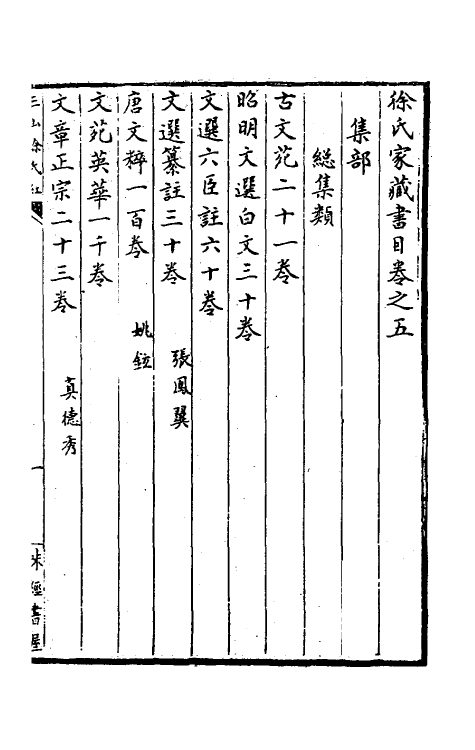 徐氏家藏書目卷之五
集部
總集類
古文苑二十一卷
昭明文選白文三十卷
文選六臣註六十卷
文選纂註三十卷 張鳳翼
唐文粹一百卷 姚鉉
文苑英華一千卷
文章正宗二十三卷 真德秀
三山徐氏紅
一
味經書屋